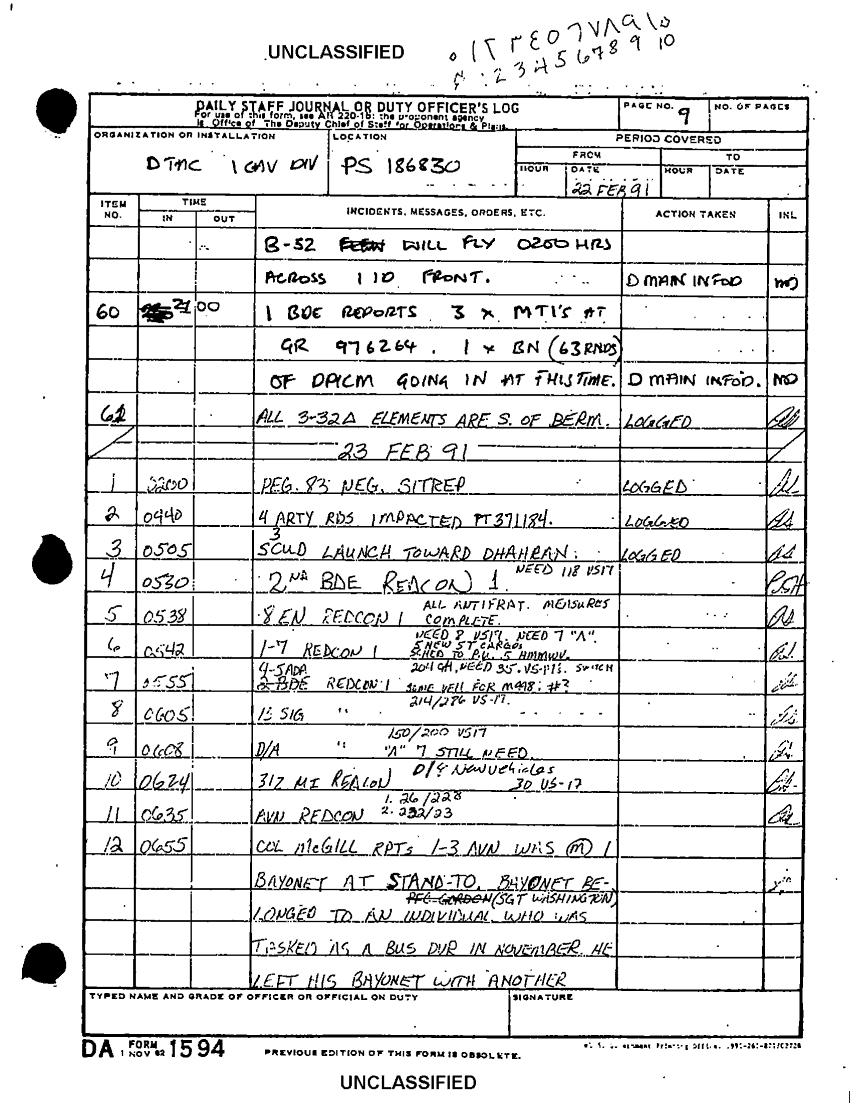 UNCLASSIFIED
٠ ١ ٢ ٣ ٤ ٥ ٦ ٧ ٨ ٩ ١٠
0 1 2 3 4 5 6 7 8 9 10
DAILY STAFF JOURNAL OR DUTY OFFICER'S LOG
For use of this form, see AR 220-15; the proponent agency
is Office of The Deputy Chief of Staff for Operations & Plans.
PAGE NO. 9
NO. OF PAGES
ORGANIZATION OR INSTALLATION
DTAC 1 CAV DIV
LOCATION
PS 186830
PERIOD COVERED
FROM TO
HOUR DATE HOUR DATE
22 FEB 91
ITEM NO. TIME IN OUT INCIDENTS, MESSAGES, ORDERS, ETC. ACTION TAKEN INL
B-52 WILL FLY 0200 HRS
ACROSS 1 ID FRONT. D MAIN INFOD MO
60 2100 1 BDE REPORTS 3 x MTI'S AT
GR 976264. 1 x BN (63 RNDS)
OF DPICM GOING IN AT THIS TIME. D MAIN INFOD. MO
61 ALL 3-32Δ ELEMENTS ARE S. OF BERM. LOGGED
23 FEB 91
1 PEG. 83 NEG. SITREP LOGGED
2 0440 4 ARTY RDS IMPACTED PT 371184. LOGGED
3 0505 3 SCUD LAUNCH TOWARD DHAHRAN. LOGGED
4 0530 2ND BDE REDCON 1 NEED 118 VS17 PSH
5 0538 8 EN REDCON 1 ALL ANTIFRAT. MEASURES
COMPLETE.
6 0542 1-7 REDCON 1 NEED 8 VS17. NEED 7 "Λ".
5 NEW 5T CARGO,
SCHED TO P.U. 5 HMMWV.
7 0555 4-5 ADA 2 BDE REDCON 1 NEED 35. VS-17's. SWITCH
SOME VEH FOR M998: #?
8 0605 13 SIG " 214/286 VS-17.
9 0608 D/A " 150/200 VS17
"Λ" 7 STILL NEED.
10 0624 312 MI REDCON 0/4 New Vehicles
30 VS-17
11 0635 AVN REDCON 1. 26/228
2. 232/23
12 0655 COL McGILL RPTs 1-3 AVN WAS (m) 1
BAYONET AT STAND-TO. BAYONET BE-
PFC GORDON (SGT WASHINGTON)
LONGED TO AN INDIVIDUAL WHO WAS
TASKED AS A BUS DVR IN NOVEMBER. HE
LEFT HIS BAYONET WITH ANOTHER
TYPED NAME AND GRADE OF OFFICER OR OFFICIAL ON DUTY SIGNATURE
DA FORM 1 NOV 62 1594 PREVIOUS EDITION OF THIS FORM IS OBSOLETE.
UNCLASSIFIED